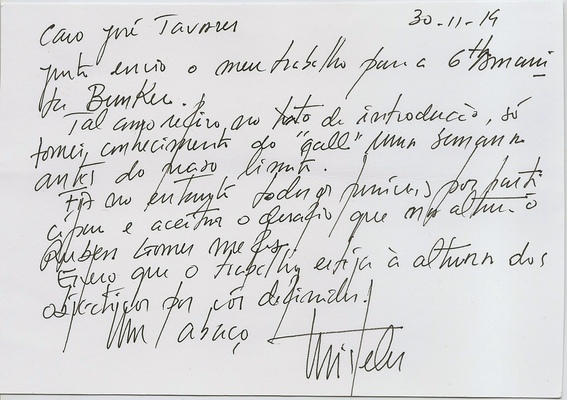 30-11-19
Caro José Tavares
junto envio o meu trabalho para a 6ª
Bunker.
Tal como refiro, no texto de introdução, só
tomei conhecimento do "call" uma semana
antes do prazo limite.
Fiz no entanto todos os possíveis por parti
cipar e aceitar o desafio que na altura o
Ruben Gomes me fez.
Espero que o trabalho esteja à altura dos
objectivos por vós definidos!
Um abraço